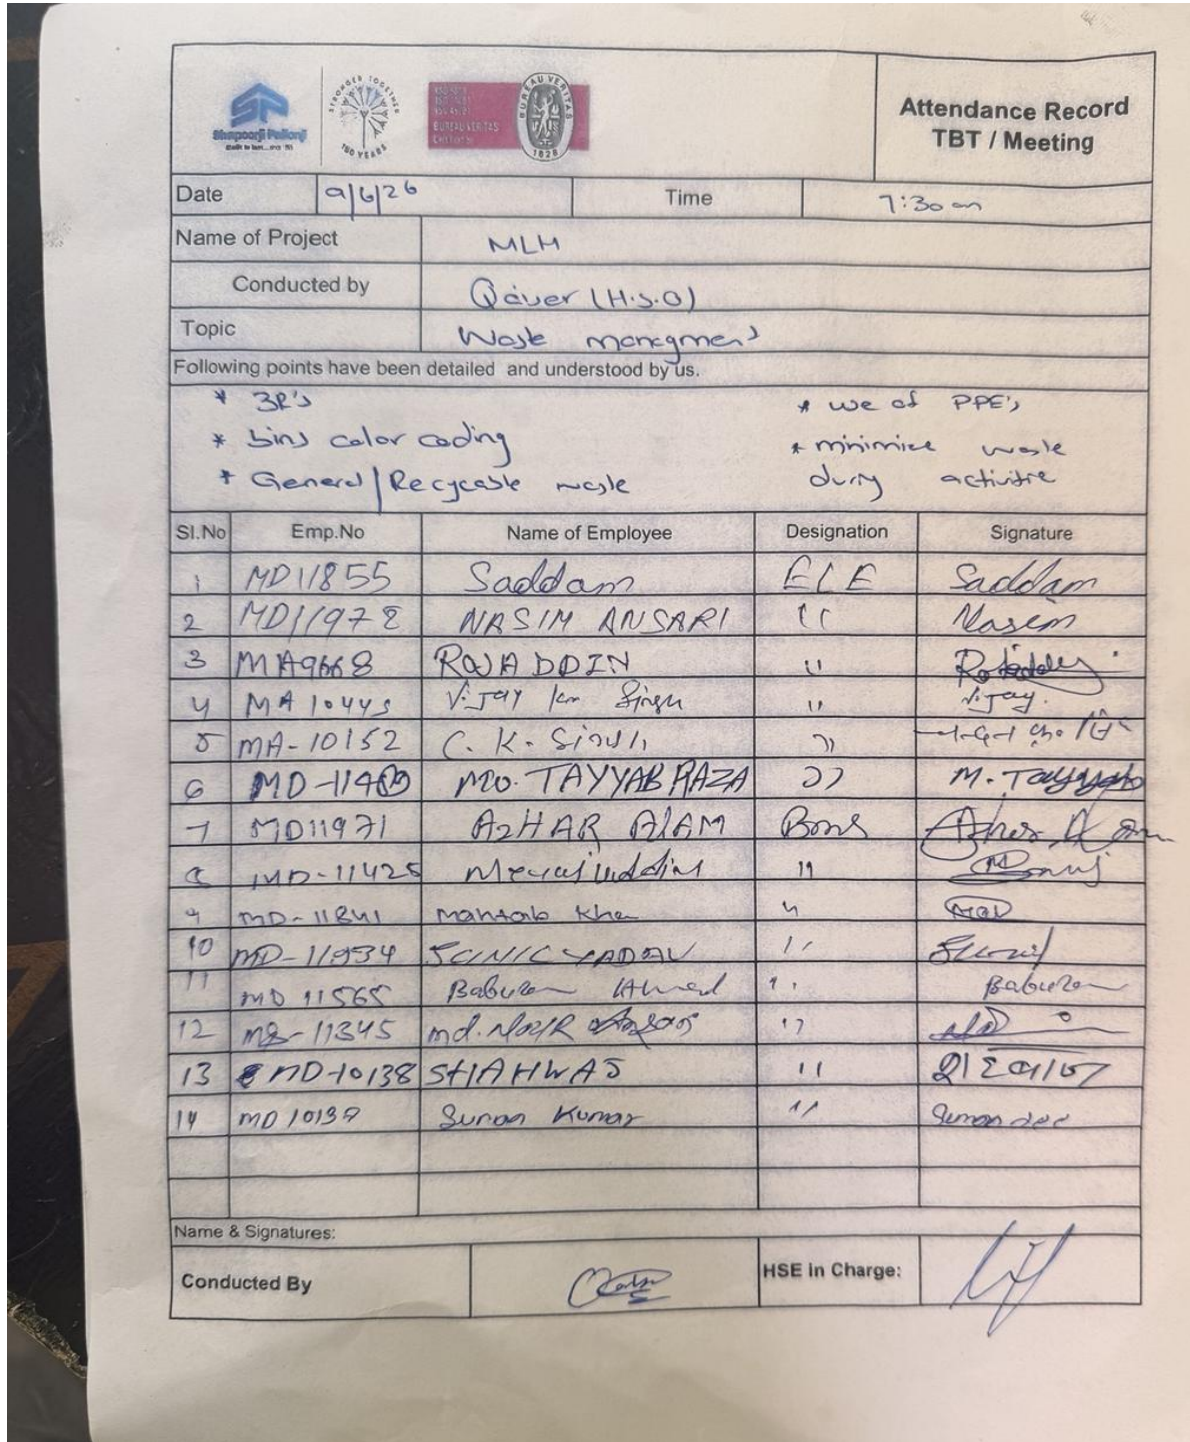 Shapoorji Pallonji
STRONGER TOGETHER
150 YEARS
BUREAU VERITAS
Certification
BUREAU VERITAS
1828
Attendance Record
TBT / Meeting
Date 9/6/26 Time 7:30 am
Name of Project MLM
Conducted by (H.S.O)
Topic Waste managment
Following points have been detailed and understood by us.
* 3R's
* bins color coding
* General/Recycable waste
* use of PPE's
* minimize waste
during activitie
Sl.No Emp.No Name of Employee Designation Signature
1 MD11855 Saddam ELE Saddam
2 MD11978 NASIM ANSARI " Nasem
3 MA9668 ROJADDIN "
4 MA 10445 Vijay km Singh " Vijay
5 MA-10152 C. K. Singh "
6 MD. TAYYAB RAZA " M. Tayyab
7 MD11971 AZHAR ALAM Azhar Alam
8 MD-11425 "
9 MD-11841 Mahtab Khan "
10 MD-11934 YADAV "
11 MD 11565 Baburam Ahmed " Baburam
12 11345 md. "
13 MD-10138 SHAHWAJ "
14 MD 10139 Suman Kumar " Suman
Name & Signatures:
Conducted By HSE In Charge: